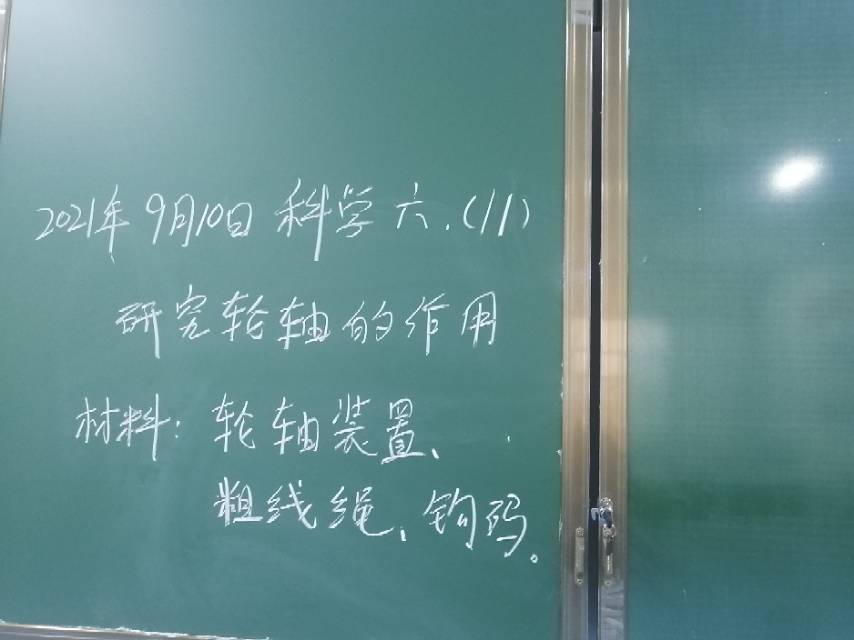 2021年9月10日 科学 六.(11)
研究轮轴的作用
材料：轮轴装置、
粗线绳、钩码。